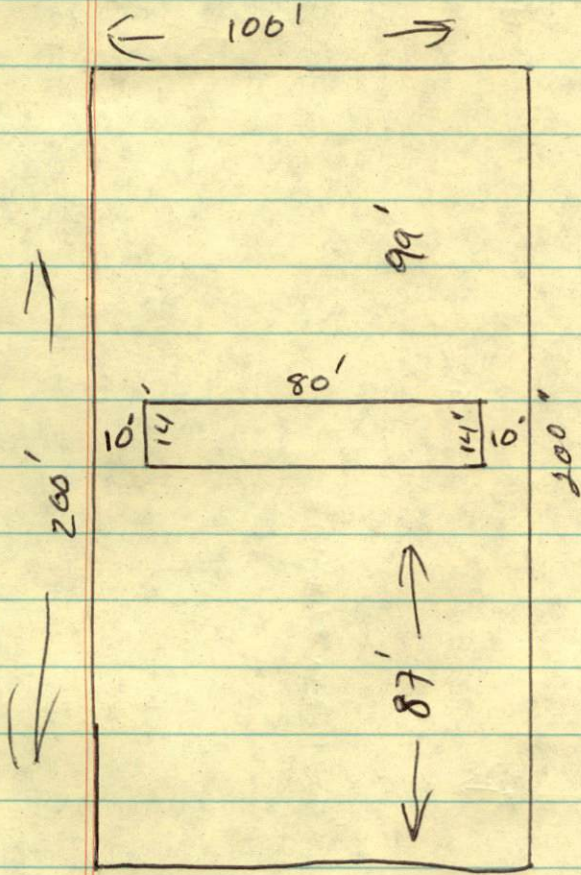 100'
99'
80'
10' 14' 14' 10'
200' 200'
87'